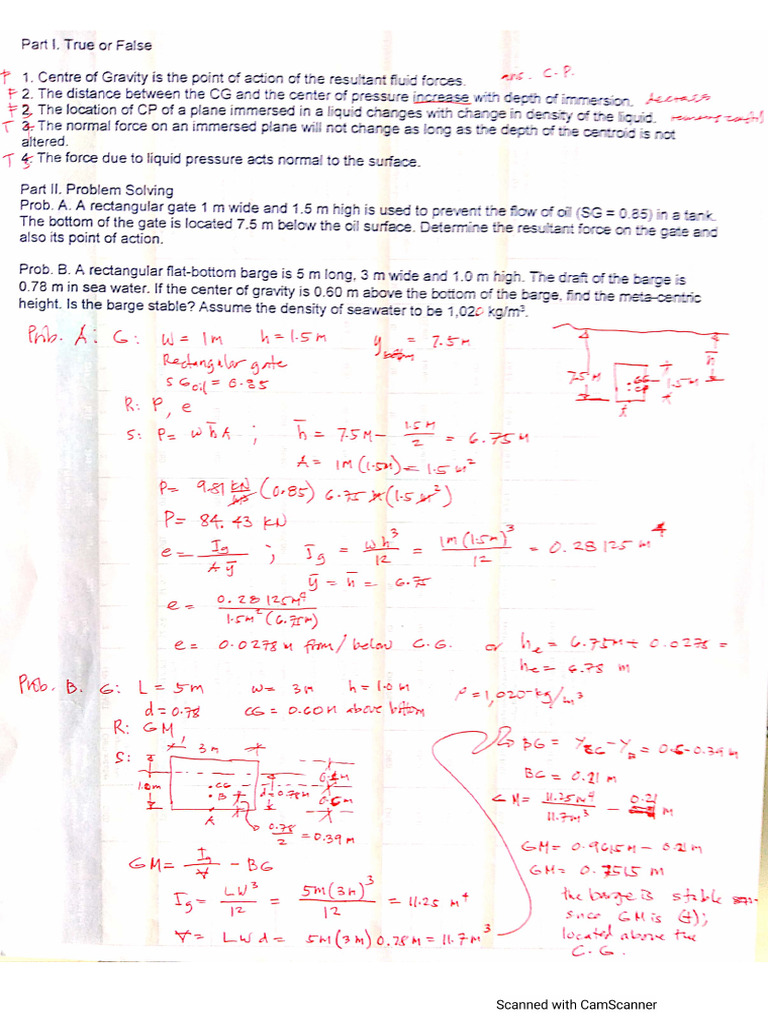 Part I. True or False
F 1. Centre of Gravity is the point of action of the resultant fluid forces. ans. C.P.
F 2. The distance between the CG and the center of pressure increase with depth of immersion. decrease
F 2. The location of CP of a plane immersed in a liquid changes with change in density of the liquid.
T 3. The normal force on an immersed plane will not change as long as the depth of the centroid is not
altered.
T 4. The force due to liquid pressure acts normal to the surface.
5
Part II. Problem Solving
Prob. A. A rectangular gate 1 m wide and 1.5 m high is used to prevent the flow of oil (SG = 0.85) in a tank.
The bottom of the gate is located 7.5 m below the oil surface. Determine the resultant force on the gate and
also its point of action.
Prob. B. A rectangular flat-bottom barge is 5 m long, 3 m wide and 1.0 m high. The draft of the barge is
0.78 m in sea water. If the center of gravity is 0.60 m above the bottom of the barge, find the meta-centric
height. Is the barge stable? Assume the density of seawater to be 1,020 kg/m³.
Prob. A: G: W = 1m h = 1.5m y bottom = 7.5m
Rectangular gate
SG oil = 0.85
7.5M CG CP 1.5M h̄
R: P, e
S: P = w h̄ A ; h̄ = 7.5M - 1.5M/2 = 6.75M
A = 1M (1.5M) = 1.5 m²
P = 9.81 KN/m³ (0.85) 6.75 M (1.5 M²)
P = 84.43 KN
e = Ig/Aȳ ; Īg = wh³/12 = 1m(1.5m)³/12 = 0.28125 m⁴
ȳ = h̄ = 6.75
e = 0.28125m⁴/1.5m²(6.75m)
e = 0.0278 m from/below C.G. or he = 6.75m + 0.0278 =
he = 6.78 m
Prob. B. G: L = 5m w = 3m h = 1.0m ρ = 1,020 kg/m³
d = 0.78 CG = 0.60m above bottom
R: GM
S: 3m
1.0m CG B d=0.78m 0.4m 0.6m
0.78/2 = 0.39m
GM = Ig/V - BG
Ig = LW³/12 = 5m(3m)³/12 = 11.25 m⁴
V = LWd = 5m(3m)0.78m = 11.7m³
BG = Y CG - Y B = 0.6 - 0.39m
BG = 0.21 m
GM = 11.25m⁴/11.7m³ - 0.21 m
GM = 0.9615m - 0.21m
GM = 0.7515 m
the barge is stable
since GM is (+);
located above the
C.G.
Scanned with CamScanner